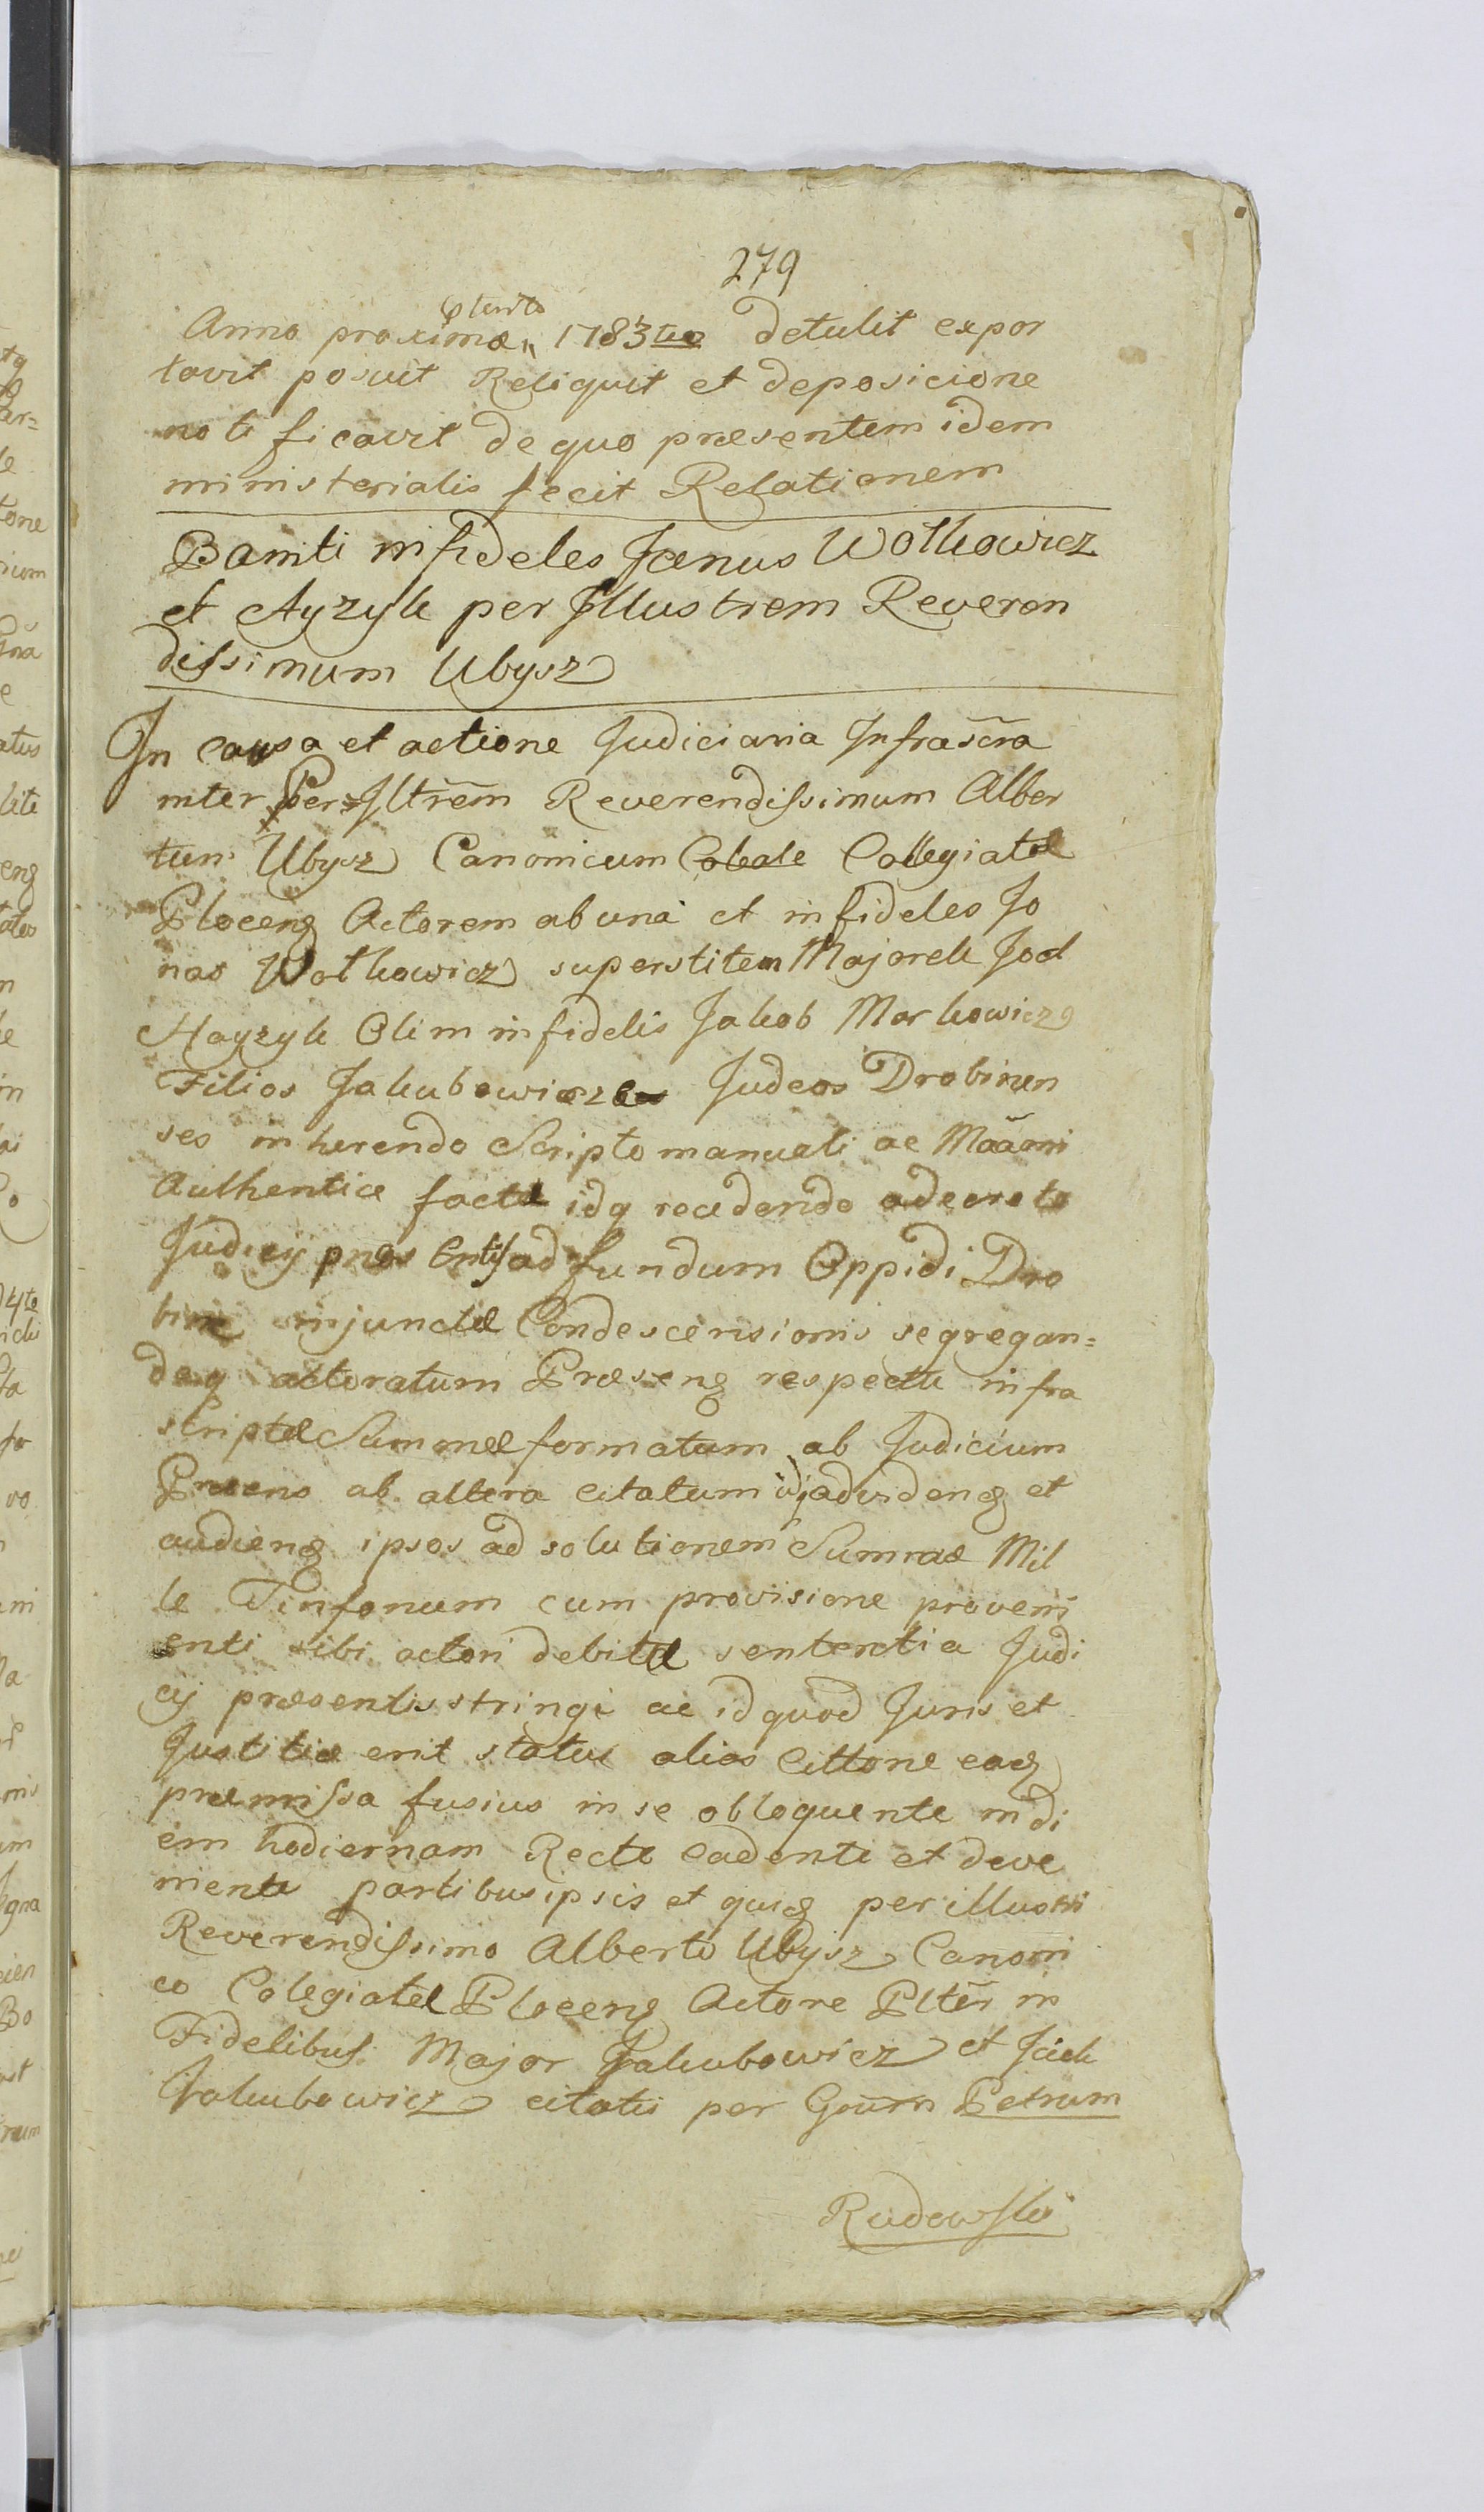 279
Anno proxime " 1783tio detulit expor
tavit posuit Reliquit et deposicione
notificavit de quo præsentem idem
ministerialis fecit Relationem
Baniti infideles Jonus Wolkowicz
et Ayzyk per Jllustrem Reveren
dissimum Ubysz
Jn causa et actione Judiciaria Jnfrascra
inter Per Jltrem Reverendissimum Alber
tum Ubysz Canonicum Collegiatæ
Ploceng Actorem ab una et infideles Jo
nas Wolkowicz superstitem Majorek
Hayzyk Olim infidelis Jakob Markowicz
Filios Jakubowicze Judeos Drobinen
ses inherendo Scripto manuali ac
Authentice factæ idq recedendo a decreto
Judicij ad fundum Oppidi Dro
bin injunctæ Condescensionis segregan=
deq actoratum Præseng respectu infra
scriptæ Summæ formatum ab Judicium
Præens ab altera citatum ad videng et
audieng ipsos ad solutionem Summæ Mil
le Tinfonum cum provisione proveni
enti sibi actori debitæ sententia Judi
cij præsentis stringi ac id quod Juris et
Justitiæ erit statui alias Cittone eaq
præmissa fusius in se obloquente in di
em hodiernam Recte Cadente et deve
niente partibus ipsis et quiq per illustri
Reverendissimo Alberto Ubysz Canoni
co Colegiatæ Ploceng Actore Plter in
Fidelibus Major Jakubowicz et Jcek
Jakubowicz citatis per Gnurn Petrum
Rudowski